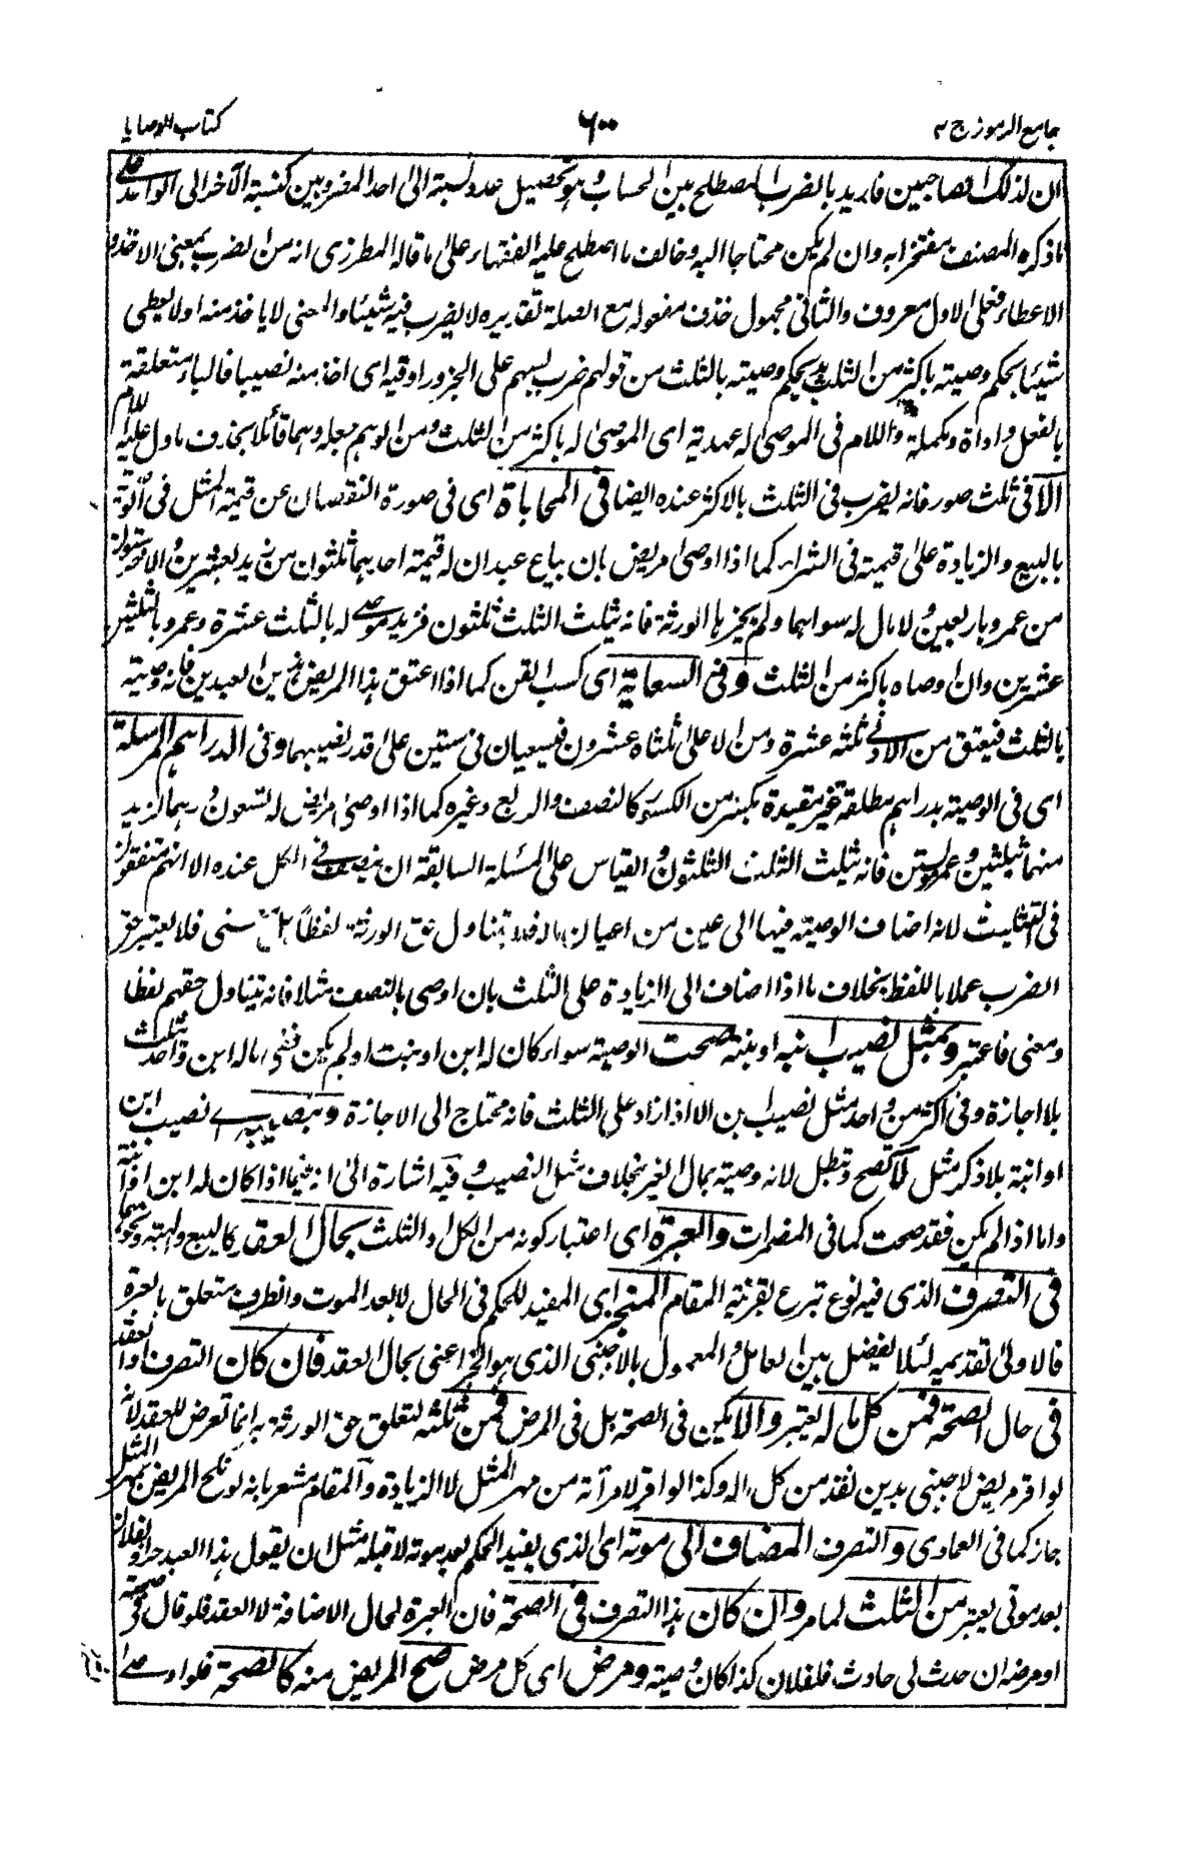 جامع الرموز ج ٢
٦٠٠
كتاب الوصايا
ان لذلك الصاحبين فاريد بالضرب المصطلح بين الحساب وهو تحصيل عدد نسبة الى احد المضروبين كنسبة الآخر الى الواحد على
ما ذكره المصنف مفتخرا به وان لم يكن محتاجا اليه وخالف ما اصطلح عليه الفقهاء على ما قاله المطرزى انه من الضرب بمعنى الاخذ و
الاعطاء فعلى الاول معروف والثانى مجهول حذف مفعوله مع الصلة تقديره لا يضرب فيه شيئا والمعنى لا ياخذ منه او لا يعطى
شيئا بحكم وصيته باكثر من الثلث بل بحكم وصيته بالثلث من قولهم ضرب بسهم على الجزور او فيه اى اخذ منه نصيبا فالباء متعلقة
بالفعل واداة ومكملة واللام فى الموصى له عهدية اى الموصى له باكثر من الثلث ومن الوهم جعله وهما قائلا بحذف ما دل عليه اللام
الا فى ثلث صور فانه يضرب فى الثلث بالاكثر عنده ايضا فى المحاباة اى فى صورة النقصان عن قيمة المثل فى الوصية
بالبيع والزيادة على قيمته فى الشراء كما اذا اوصى مريض بان يباع عبدان له قيمة احدهما ثلثون من زيد بعشرين والآخر ستون
من عمرو باربعين ولا مال له سواهما ولم يجزها الورثة فانه يثلث الثلث ثلثون فزيد موصى له بالثلث عشرة وعمرو بالثلثين
عشرين وان اوصاه باكثر من الثلث وفى السعاية اى كسب القن كما اذا اعتق هذا المريض هذين العبدين فانه وصية
بالثلث فيعتق من الادنى ثلثه عشرة ومن الاعلى ثلثاه عشرون فيسعيان فى ستين على قدر نصيبهما وفى الدراهم المرسلة
اى فى الوصية بدراهم مطلقة غير مقيدة بكسر من الكسور كالنصف والربع وغيره كما اذا اوصى مريض له تسعون درهما لزيد
منهما بثلثين وعمرو بستين فانه يثلث الثلث الثلثون والقياس على المسئلة السابقة ان ينصف فى الكل عنده الا انهم متفقون
فى التثليث لانه اضاف الوصية فيها الى عين من اعيان ماله فلا يتناول حق الورثة لفظا بل معنى فلا يعتبر حق
الضرب عملا باللفظ بخلاف ما اذا اضاف الى الزيادة على الثلث بان اوصى بالنصف مثلا فانه يتناول حقهم لفظا
ومعنى فاعتبر وبمثل نصيب ابنه او بنته صحت الوصية سواء كان له ابن او بنت او لم يكن ففى ماله ابن واحد ثلث
بلا اجازة وفى اكثر من واحد مثل نصيب ابن الا اذا زاد على الثلث فانه محتاج الى الاجازة وبنصيب اى نصيب ابن
او ابنة بلا ذكر مثل لا تصح وتبطل لانه وصية بمال الغير بخلاف مثل النصيب وفيه اشارة الى انه فيما اذا كان له ابن او ابنة
واما اذا لم يكن فقد صحت كما فى المضمرات والعبرة اى اعتبار كونه من الكل او الثلث بحال العقد كالبيع والهبة ونحوهما
فى التصرف الذى فيه نوع تبرع بقرينة المقام المنجز اى المفيد للحكم فى الحال لا بعد الموت والظرف متعلق بالعبرة
فالاولى تقديمه لئلا يفصل بين العامل والمعمول بالاجنبى الذى هو الخبر اعنى بحال العقد فان كان التصرف او العقد
فى حال الصحة فمن كل ماله يعتبر والا يكن فى الصحة بل فى المرض فمن ثلثه لتعلق حق الورثة به انما تعرض للعقد لانه
لو اقر مريض لاجنبى بدين نفذ من كل ماله وكذا لو اقر لامرأته من مهر المثل لا الزيادة والمقام مشعر بانه لو نكح المريض بمهر المثل
جاز كما فى العمادى والتصرف المضاف الى موته اى الذى يفيد الحكم بعد موته لا قبله مثل ان يقول هذا العبد حر او لفلان
بعد موتى يعتبر من الثلث لما مر وان كان هذا التصرف فى الصحة فان العبرة لحال الاضافة لا العقد فلو قال فى صحته
او مرضه ان حدث لى حادث فلفلان كذا كان وصية ومرض اى كل مرض صح المريض منه كالصحة فلو اوصى